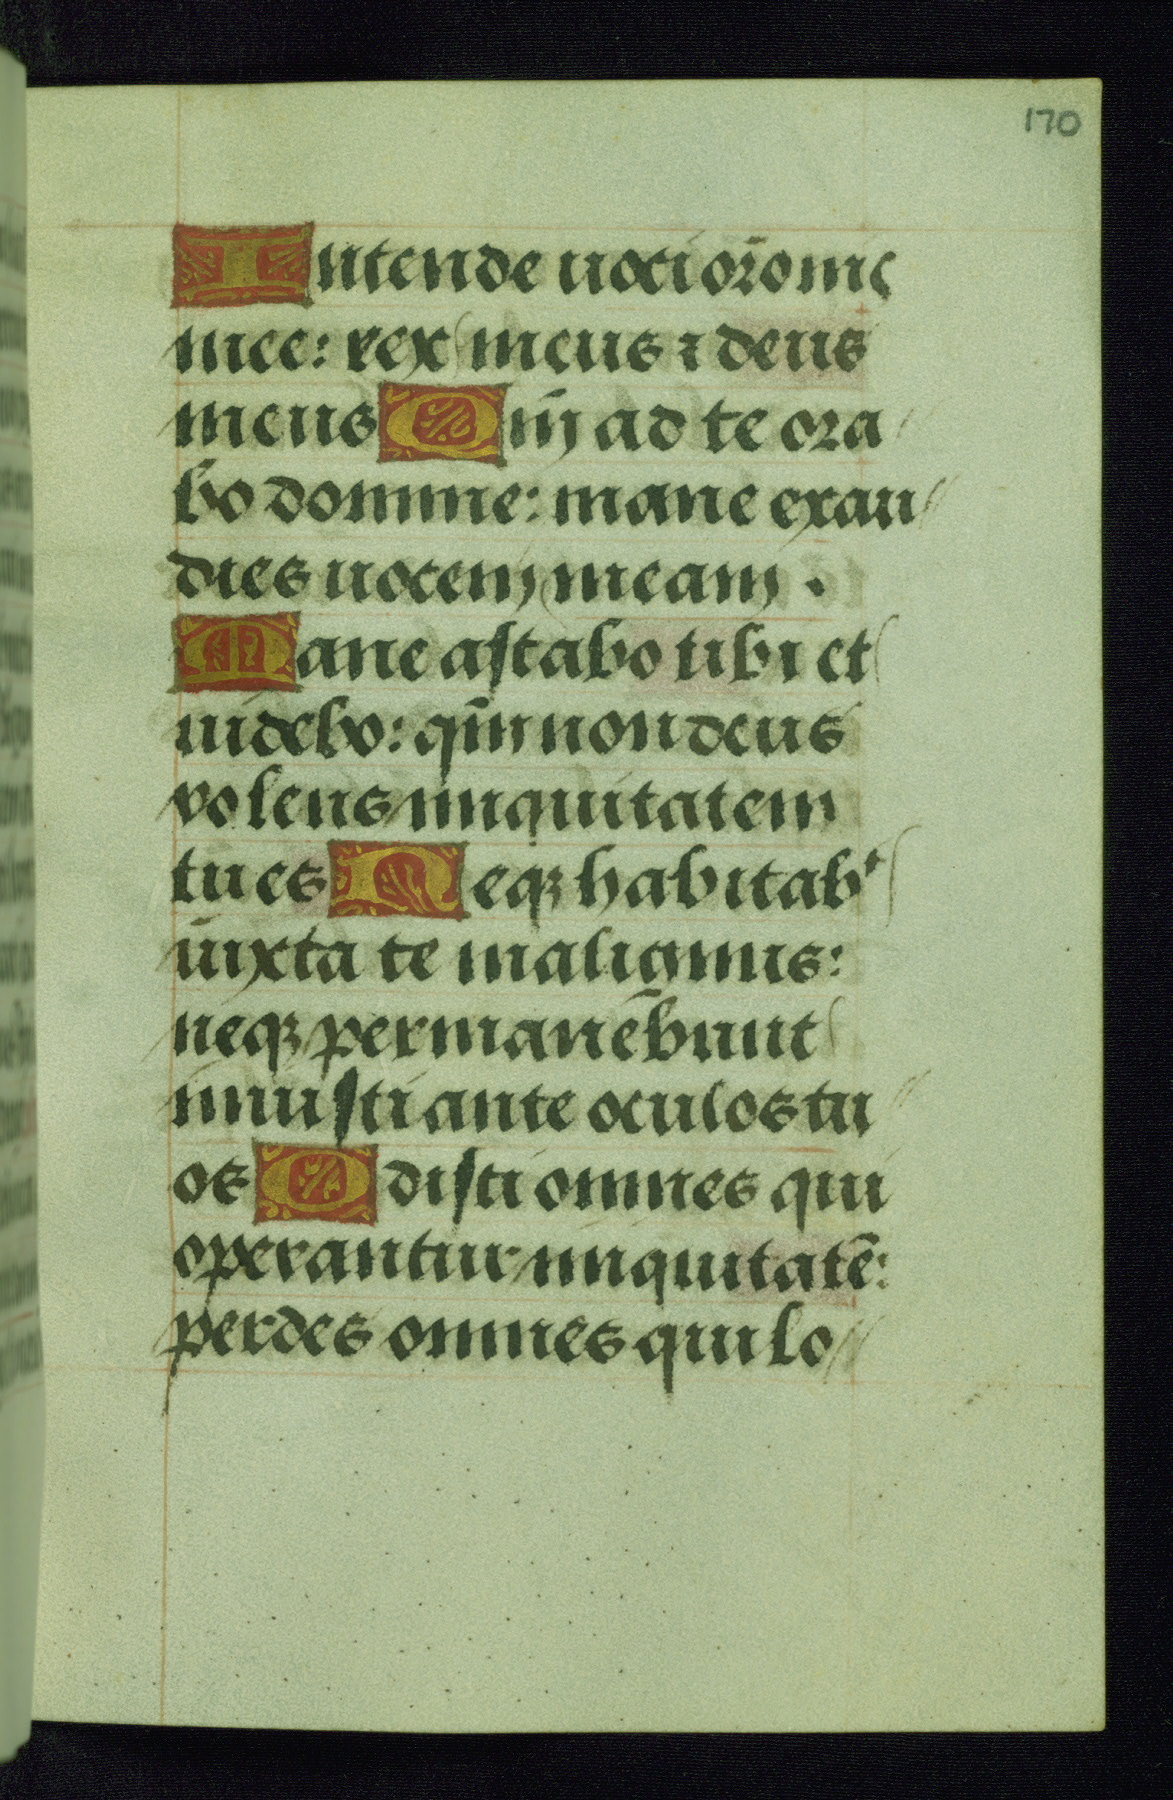 170
Intende uoci orōnis
mee: rex meus ⁊ deus
meus Qm̄ ad te ora
bo domine: mane exau
dies uocem meam .
Mane astabo tibi et
uidebo: qm̄ non deus
volens iniquitatem
tu es Neqꝫ habitab᷑
iuxta te malignus:
neqꝫ permanēbunt
iniusti ante oculos tu
os Odisti omnes qui
operantur iniquitatē:
perdes omnes qui lo